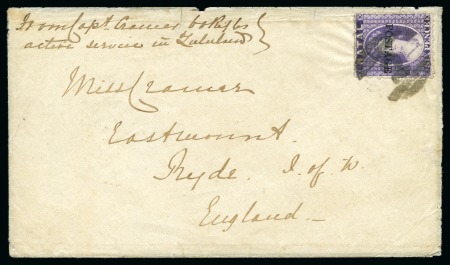 From Capt. Cramer 60 Rifles
active service in Zululand
NATAL
POSTAGE
SIXPENCE
Miss Cramer
Eastmount.
Ryde. I. of W.
England.